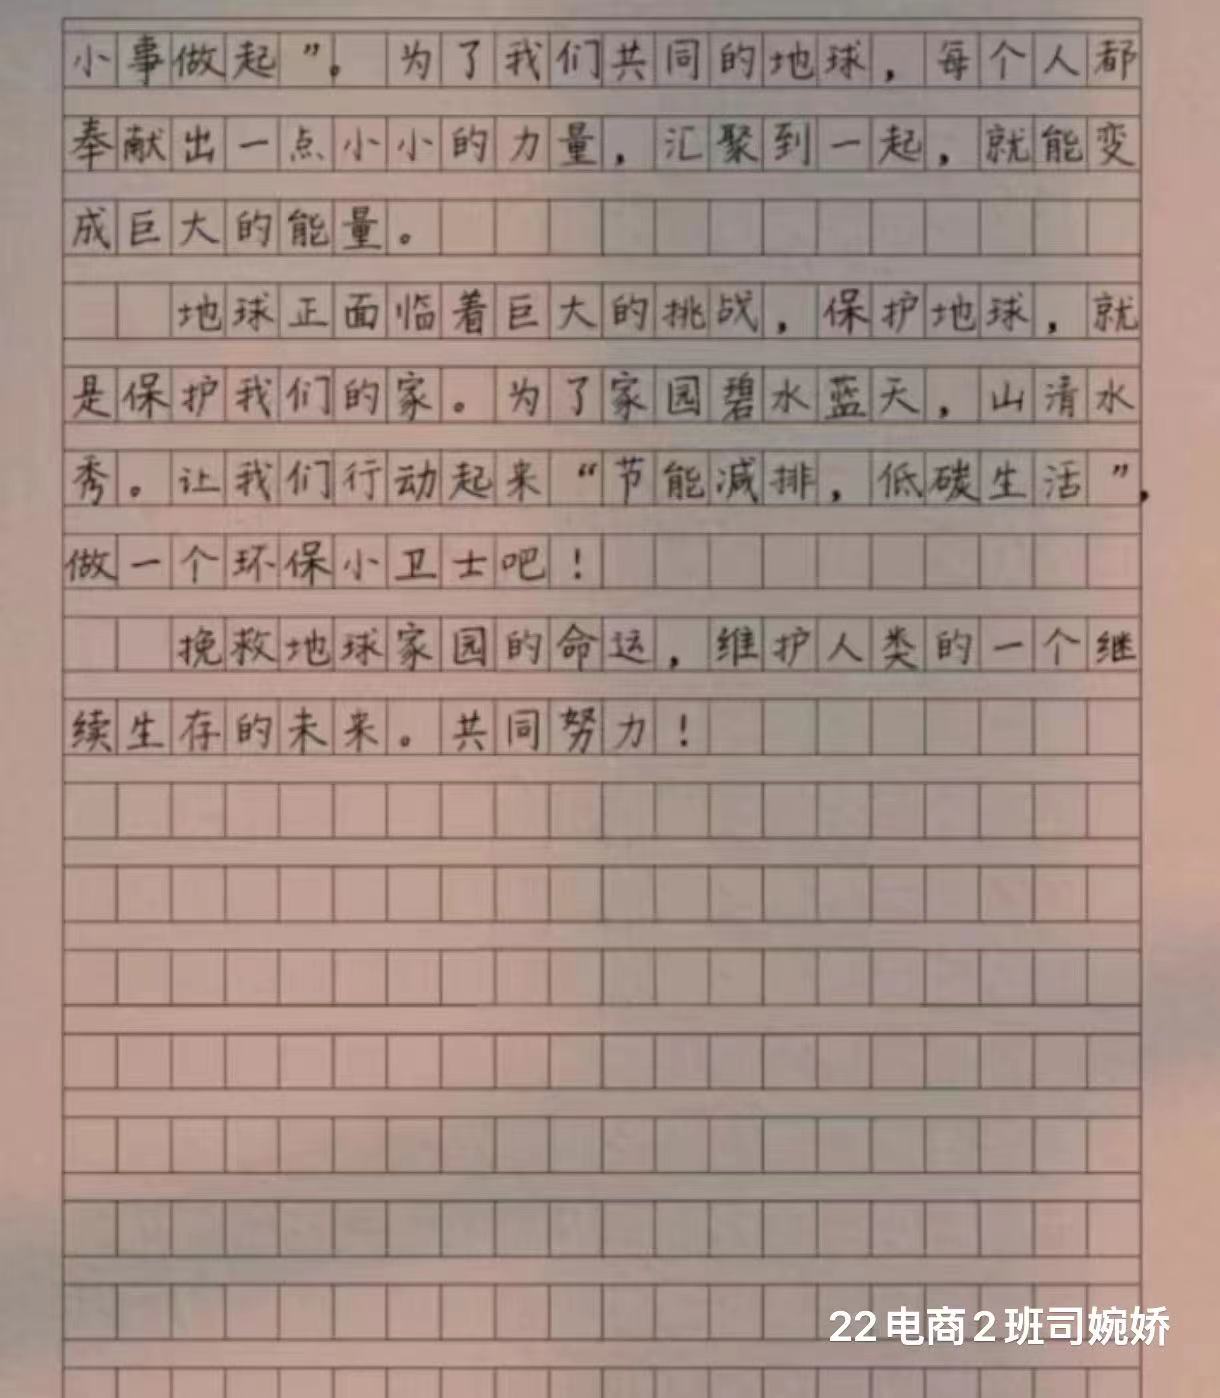 小事做起”。为了我们共同的地球，每个人都
奉献出一点小小的力量，汇聚到一起，就能变
成巨大的能量。
地球正面临着巨大的挑战，保护地球，就
是保护我们的家。为了家园碧水蓝天，山清水
秀。让我们行动起来“节能减排，低碳生活”，
做一个环保小卫士吧！
挽救地球家园的命运，维护人类的一个继
续生存的未来。共同努力！
22电商2班司婉娇